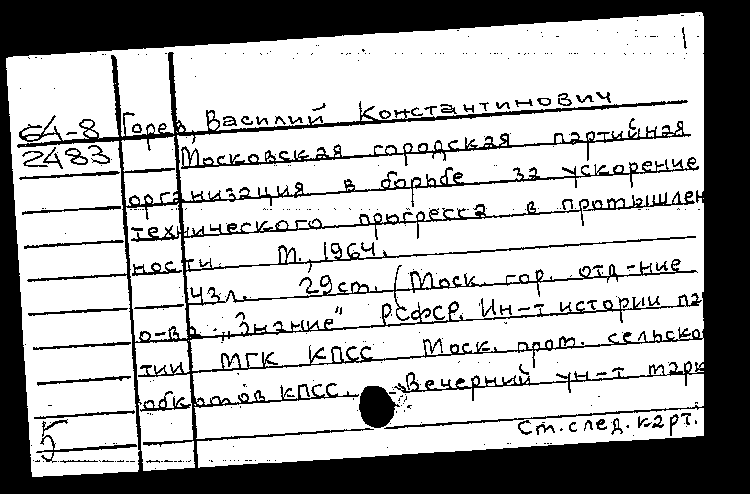 64-8 Горев, Василий Константинович
2483 Московская городская партийная
организация в борьбе за ускорение
технического прогресса в промышлен
ности. М., 1964.
43л. 29см. (Моск. гор. отд-ние
о-ва „Знание" РСФСР. Ин-т истории пар
тии МГК КПСС Моск. пром. сельско
обкомов КПСС. Вечерний ун-т марк
5 См. след. карт.